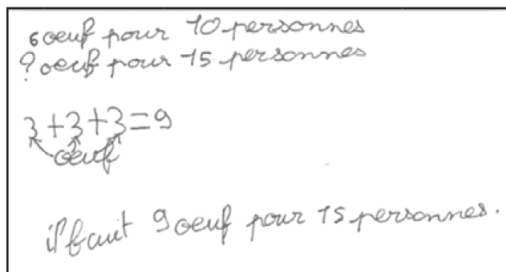 6 oeuf pour 10 personnes
? oeuf pour 15 personnes
3+3+3=9
oeuf
il faut 9 oeuf pour 15 personnes.